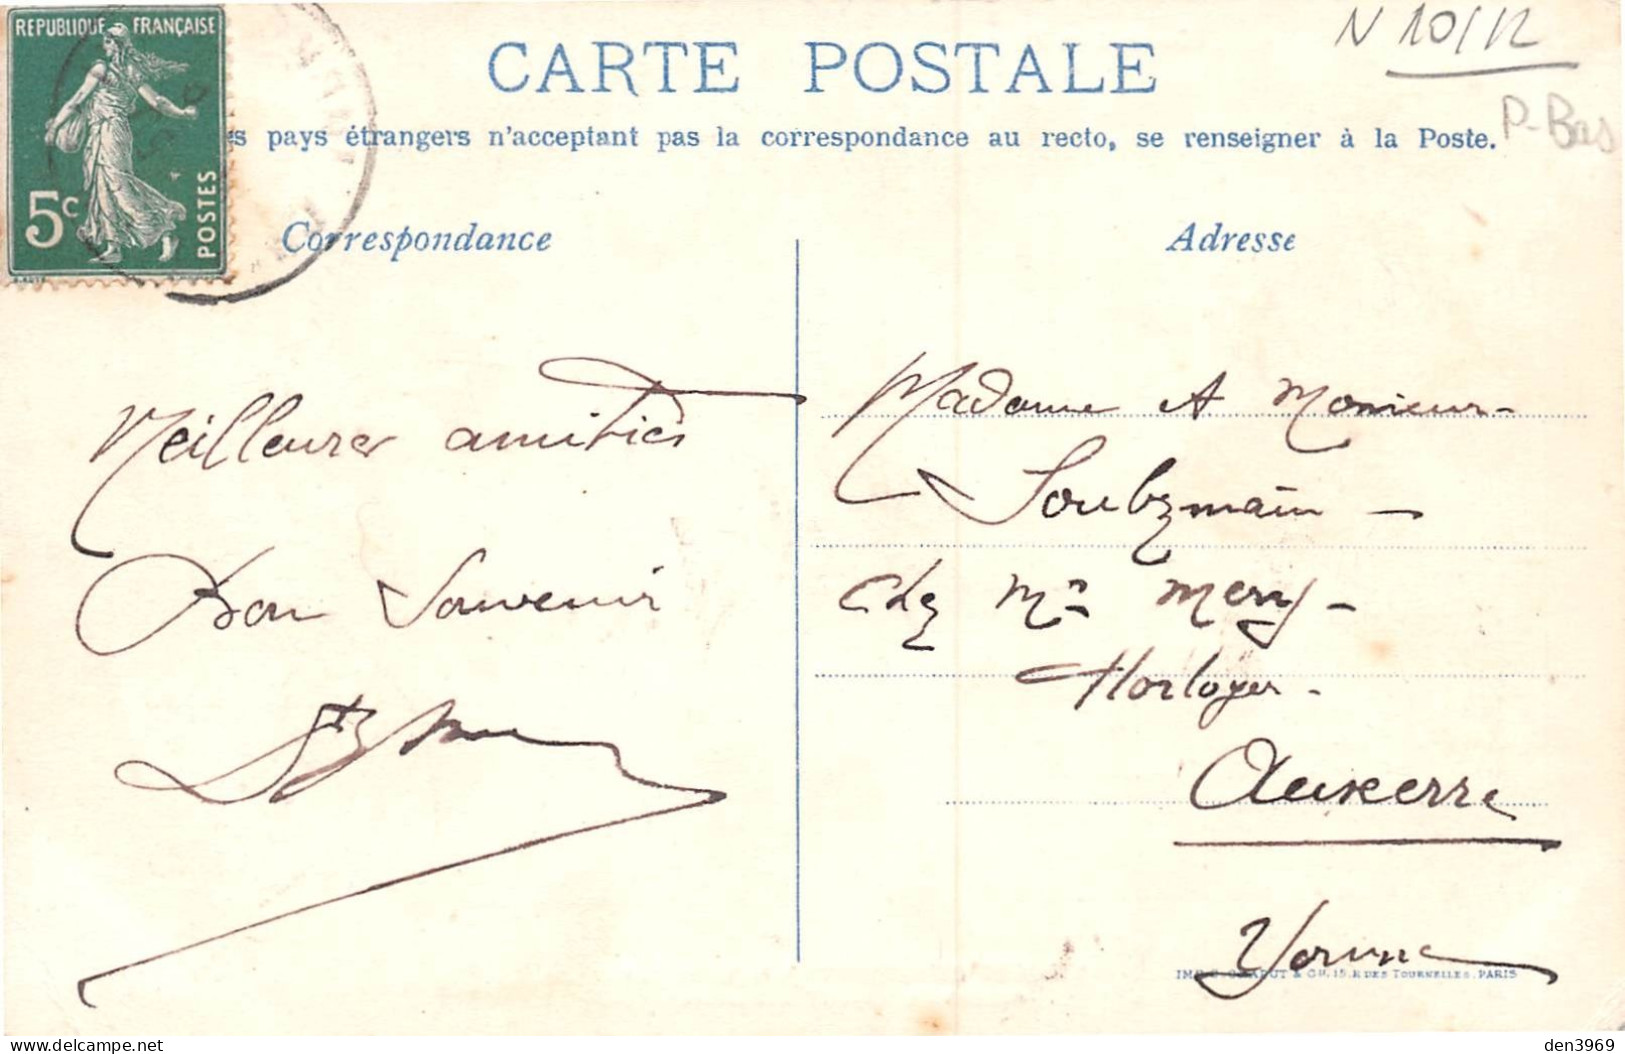 REPUBLIQUE FRANÇAISE
5c
POSTES
CARTE POSTALE
N 10/12
P-Bas
es pays étrangers n'acceptant pas la correspondance au recto, se renseigner à la Poste.
Correspondance
Adresse
Meilleures amitiés
Bon Souvenir
Madame et Monsieur-
Soubzmain -
Chez Mr Mery -
Horloger -
Auxerre
Yonne
IMP. & CH. 18. R DES TOURNELLES. PARIS
delcampe.net
den3969